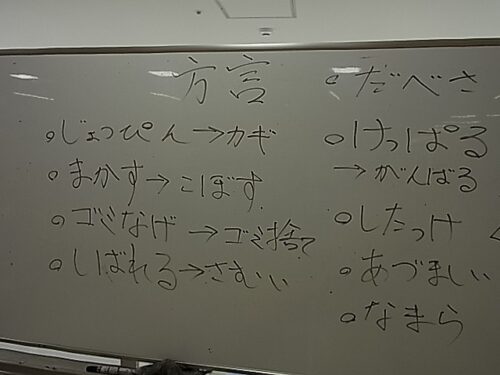 方言
○じょっぴん→カギ
○まかす→こぼす
○ゴミなげ→ゴミ捨て
○しばれる→さむい
○だべさ
○けっぱる
→がんばる
○したっけ
○あづましい
○なまら